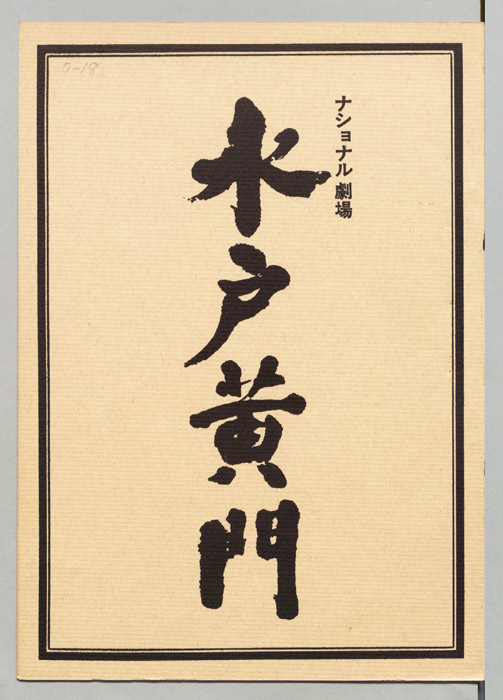 ナショナル劇場
水戸黄門
7-18